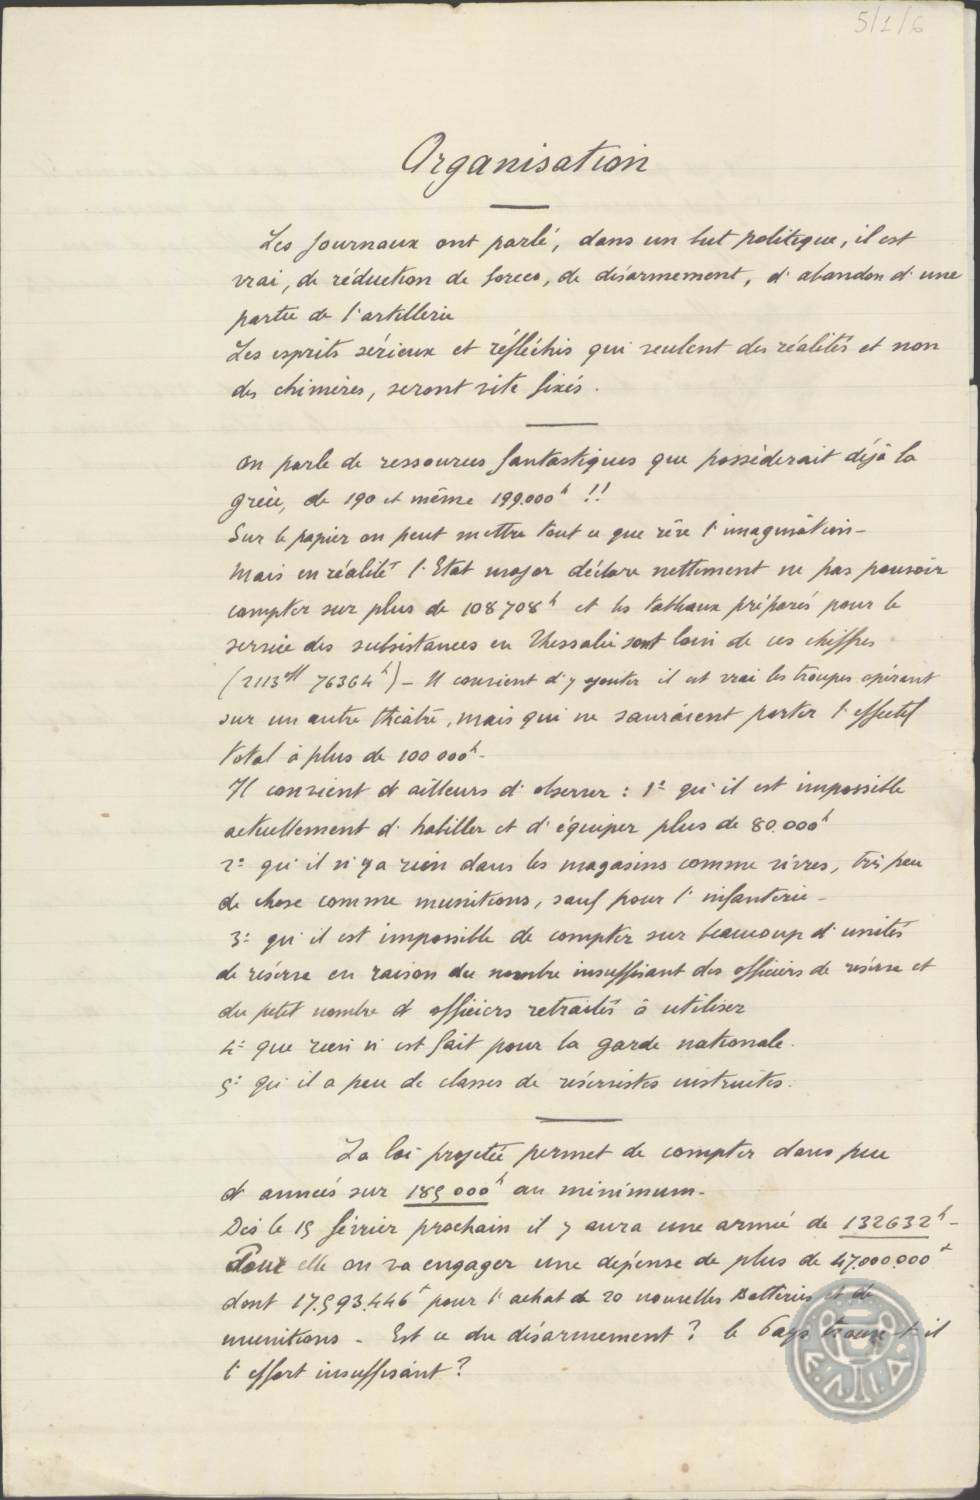 5/1/6
Organisation
Les journaux ont parlé, dans un but politique, il est
vrai, de réduction de forces, de désarmement, d'abandon d'une
partie de l'artillerie
Les esprits sérieux et réfléchis qui veulent des réalités et non
des chimères, seront vite fixés.
On parle de ressources fantastiques que possèderait déjà la
Grèce, de 190 et même 199.000h !!
Sur le papier on peut mettre tout ce que rêve l'imagination-
Mais en réalité l'Etat major déclare nettement ne pas pouvoir
compter sur plus de 108708h et les tableaux préparés pour le
service des subsistances en Thessalie sont loin de ces chiffres
(2113 76364h) - Il convient d'y ajouter il est vrai les troupes opérant
sur un autre théâtre, mais qui ne sauraient porter l'effectif
total à plus de 100 000h-
Il convient d'ailleurs d'observer : 1º qu'il est impossible
actuellement d'habiller et d'équiper plus de 80.000h
2º qu'il n'y a rien dans les magasins comme vivres, très peu
de chose comme munitions, sauf pour l'infanterie -
3º qu'il est impossible de compter sur beaucoup d'unités
de réserve en raison du nombre insuffisant des officiers de réserve et
du petit nombre d'officiers retraités à utiliser
4º que rien n'est fait pour la garde nationale.
5º qu'il a peu de classes de réservistes instruites.
La loi projetée permet de compter dans peu
d'années sur 185 000h au minimum-
Dès le 15 février prochain il y aura une armée de 132632h-
Pour elle on va engager une dépense de plus de 47.000.000
dont 17.593.446 pour l'achat de 20 nouvelles Batteries et de
munitions - Est ce du désarmement ? le Pays trouve-t-il
l'effort insuffisant ?